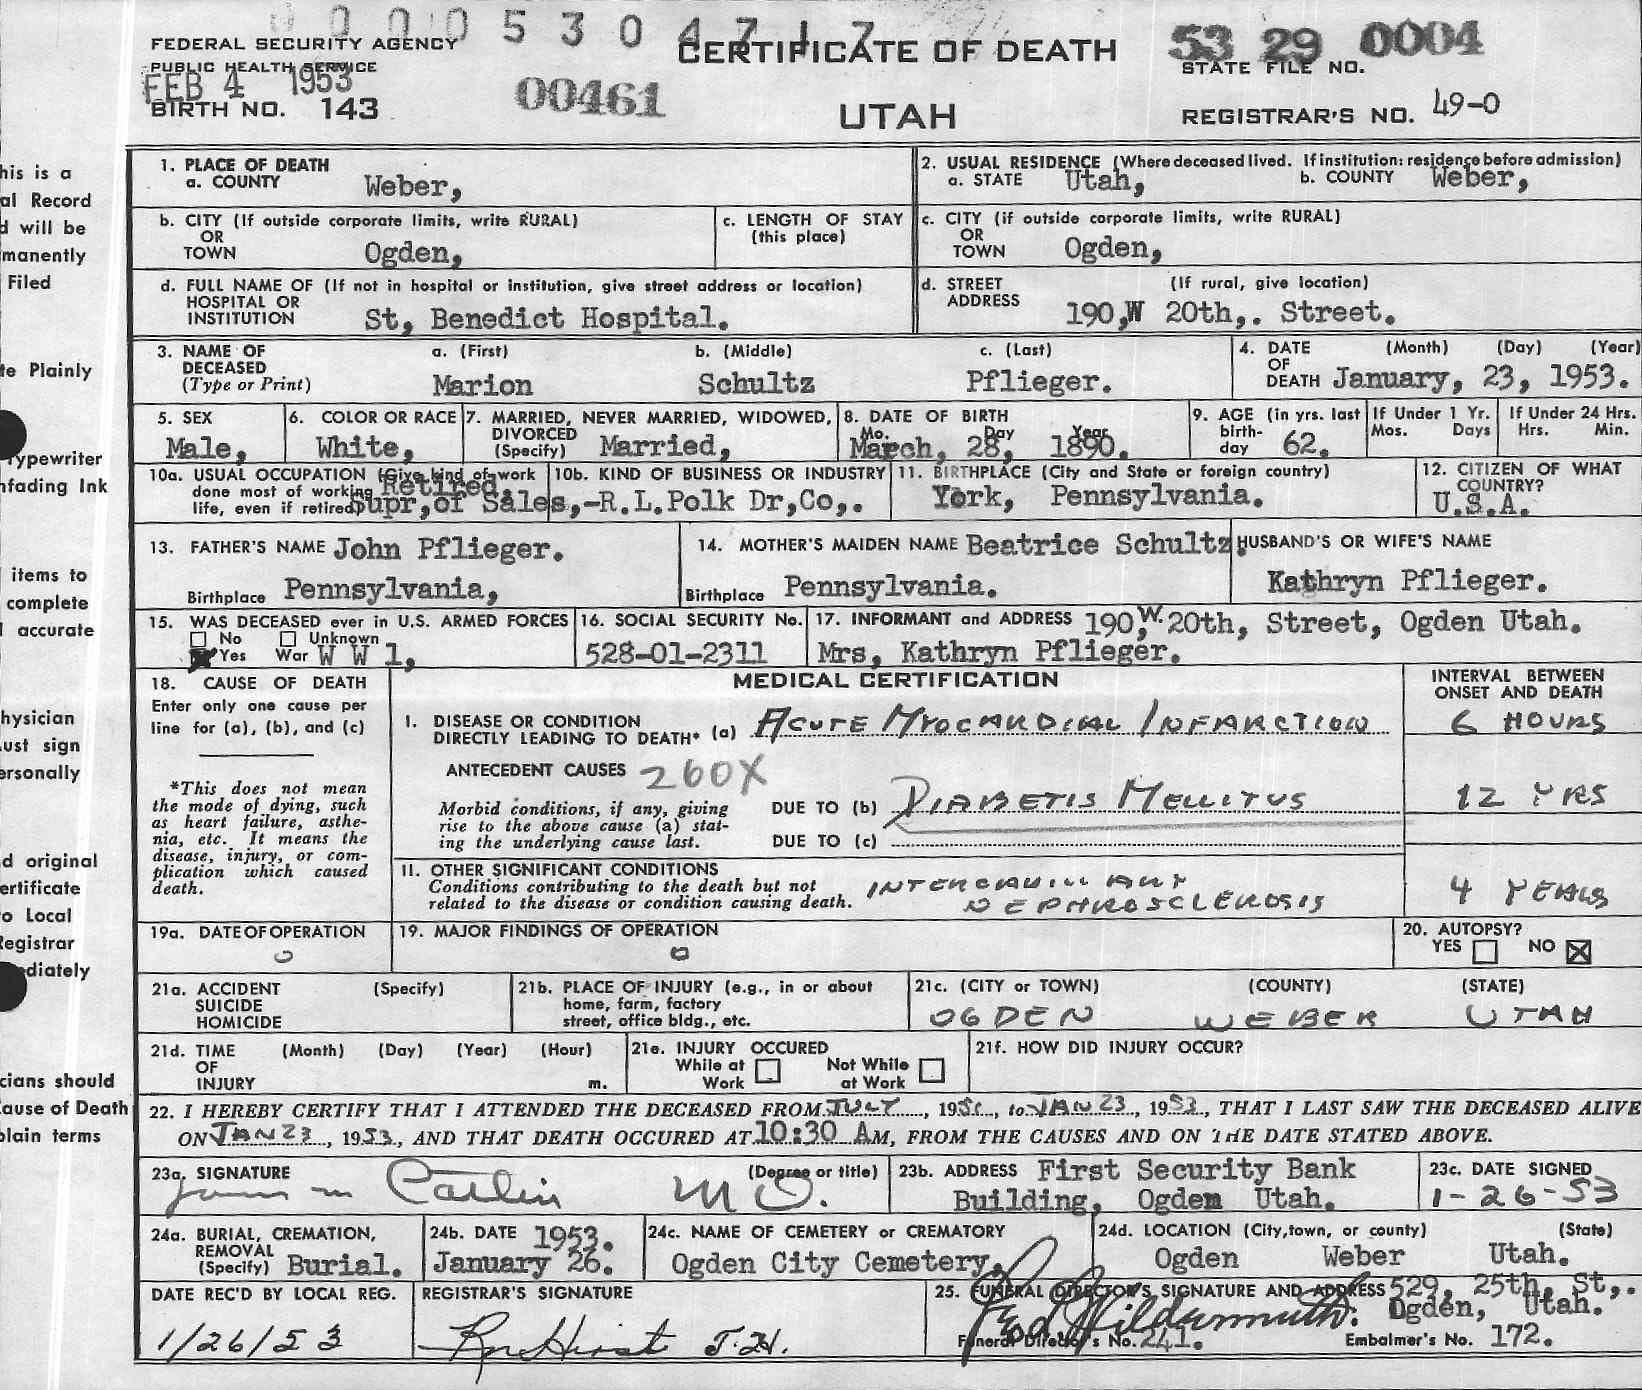 00005304717
FEDERAL SECURITY AGENCY
PUBLIC HEALTH SERVICE
FEB 4 1953
BIRTH NO. 143
00461
CERTIFICATE OF DEATH
UTAH
53 29 0004
STATE FILE NO.
REGISTRAR'S NO. 49-0
his is a
al Record
d will be
manently
Filed
te Plainly
Typewriter
nfading Ink
items to
complete
accurate
hysician
ust sign
ersonally
d original
ertificate
o Local
Registrar
diately
cians should
ause of Death
plain terms
1. PLACE OF DEATH
a. COUNTY Weber,
2. USUAL RESIDENCE (Where deceased lived. If institution: residence before admission)
a. STATE Utah, b. COUNTY Weber,
b. CITY (If outside corporate limits, write RURAL)
OR
TOWN Ogden,
c. LENGTH OF STAY
(this place)
c. CITY (if outside corporate limits, write RURAL)
OR
TOWN Ogden,
d. FULL NAME OF (If not in hospital or institution, give street address or location)
HOSPITAL OR
INSTITUTION St, Benedict Hospital.
d. STREET (If rural, give location)
ADDRESS 190,W 20th,. Street.
3. NAME OF DECEASED
(Type or Print)
a. (First) b. (Middle) c. (Last)
Marion Schultz Pflieger.
4. DATE (Month) (Day) (Year)
OF
DEATH January, 23, 1953.
5. SEX
Male,
6. COLOR OR RACE
White,
7. MARRIED, NEVER MARRIED, WIDOWED,
DIVORCED
(Specify) Married,
8. DATE OF BIRTH
Mo. Day Year
March, 28, 1890.
9. AGE (in yrs. last
birth-
day 62.
If Under 1 Yr.
Mos. Days
If Under 24 Hrs.
Hrs. Min.
10a. USUAL OCCUPATION (Give kind of work
done most of working Retired.
life, even if retired) Supr,of Sales,
10b. KIND OF BUSINESS OR INDUSTRY
-R.L.Polk Dr,Co,.
11. BIRTHPLACE (City and State or foreign country)
York, Pennsylvania.
12. CITIZEN OF WHAT
COUNTRY?
U.S.A.
13. FATHER'S NAME John Pflieger.
Birthplace Pennsylvania,
14. MOTHER'S MAIDEN NAME Beatrice Schultz.
Birthplace Pennsylvania.
HUSBAND'S OR WIFE'S NAME
Kathryn Pflieger.
15. WAS DECEASED ever in U.S. ARMED FORCES
No Unknown
Yes War W W 1,
16. SOCIAL SECURITY No.
528-01-2311
17. INFORMANT and ADDRESS 190,W. 20th, Street, Ogden Utah.
Mrs, Kathryn Pflieger.
18. CAUSE OF DEATH
Enter only one cause per
line for (a), (b), and (c)
*This does not mean
the mode of dying, such
as heart failure, asthe-
nia, etc. It means the
disease, injury, or com-
plication which caused
death.
MEDICAL CERTIFICATION
INTERVAL BETWEEN
ONSET AND DEATH
I. DISEASE OR CONDITION
DIRECTLY LEADING TO DEATH* (a) ACUTE MYOCARDIAL INFARCTION 6 HOURS
ANTECEDENT CAUSES 260X
Morbid conditions, if any, giving
rise to the above cause (a) stat-
ing the underlying cause last.
DUE TO (b) DIABETIS MELLITUS 12 YRS
DUE TO (c)
II. OTHER SIGNIFICANT CONDITIONS
Conditions contributing to the death but not
related to the disease or condition causing death.
NEPHROSCLEROSIS 4 YEARS
19a. DATE OF OPERATION
0
19. MAJOR FINDINGS OF OPERATION
0
20. AUTOPSY?
YES NO X
21a. ACCIDENT (Specify)
SUICIDE
HOMICIDE
21b. PLACE OF INJURY (e.g., in or about
home, farm, factory
street, office bldg., etc.
21c. (CITY or TOWN) (COUNTY) (STATE)
OGDEN WEBER UTAH
21d. TIME (Month) (Day) (Year) (Hour)
OF
INJURY m.
21e. INJURY OCCURED
While at Work
Not While at Work
21f. HOW DID INJURY OCCUR?
22. I HEREBY CERTIFY THAT I ATTENDED THE DECEASED FROM JULY, 195, to JAN 23, 1953, THAT I LAST SAW THE DECEASED ALIVE
ON JAN 23, 1953, AND THAT DEATH OCCURED AT 10:30 AM, FROM THE CAUSES AND ON THE DATE STATED ABOVE.
23a. SIGNATURE (Degree or title)
Catlin MD.
23b. ADDRESS First Security Bank
Building, Ogden Utah.
23c. DATE SIGNED
1-26-53
24a. BURIAL, CREMATION,
REMOVAL
(Specify) Burial.
24b. DATE 1953.
January 26.
24c. NAME OF CEMETERY or CREMATORY
Ogden City Cemetery,
24d. LOCATION (City,town, or county) (State)
Ogden Weber Utah.
DATE REC'D BY LOCAL REG.
1/26/53
REGISTRAR'S SIGNATURE
25. FUNERAL DIRECTOR'S SIGNATURE AND ADDRESS 529, 25th, St,.
Ogden, Utah.
Funeral Director's No. 241. Embalmer's No. 172.